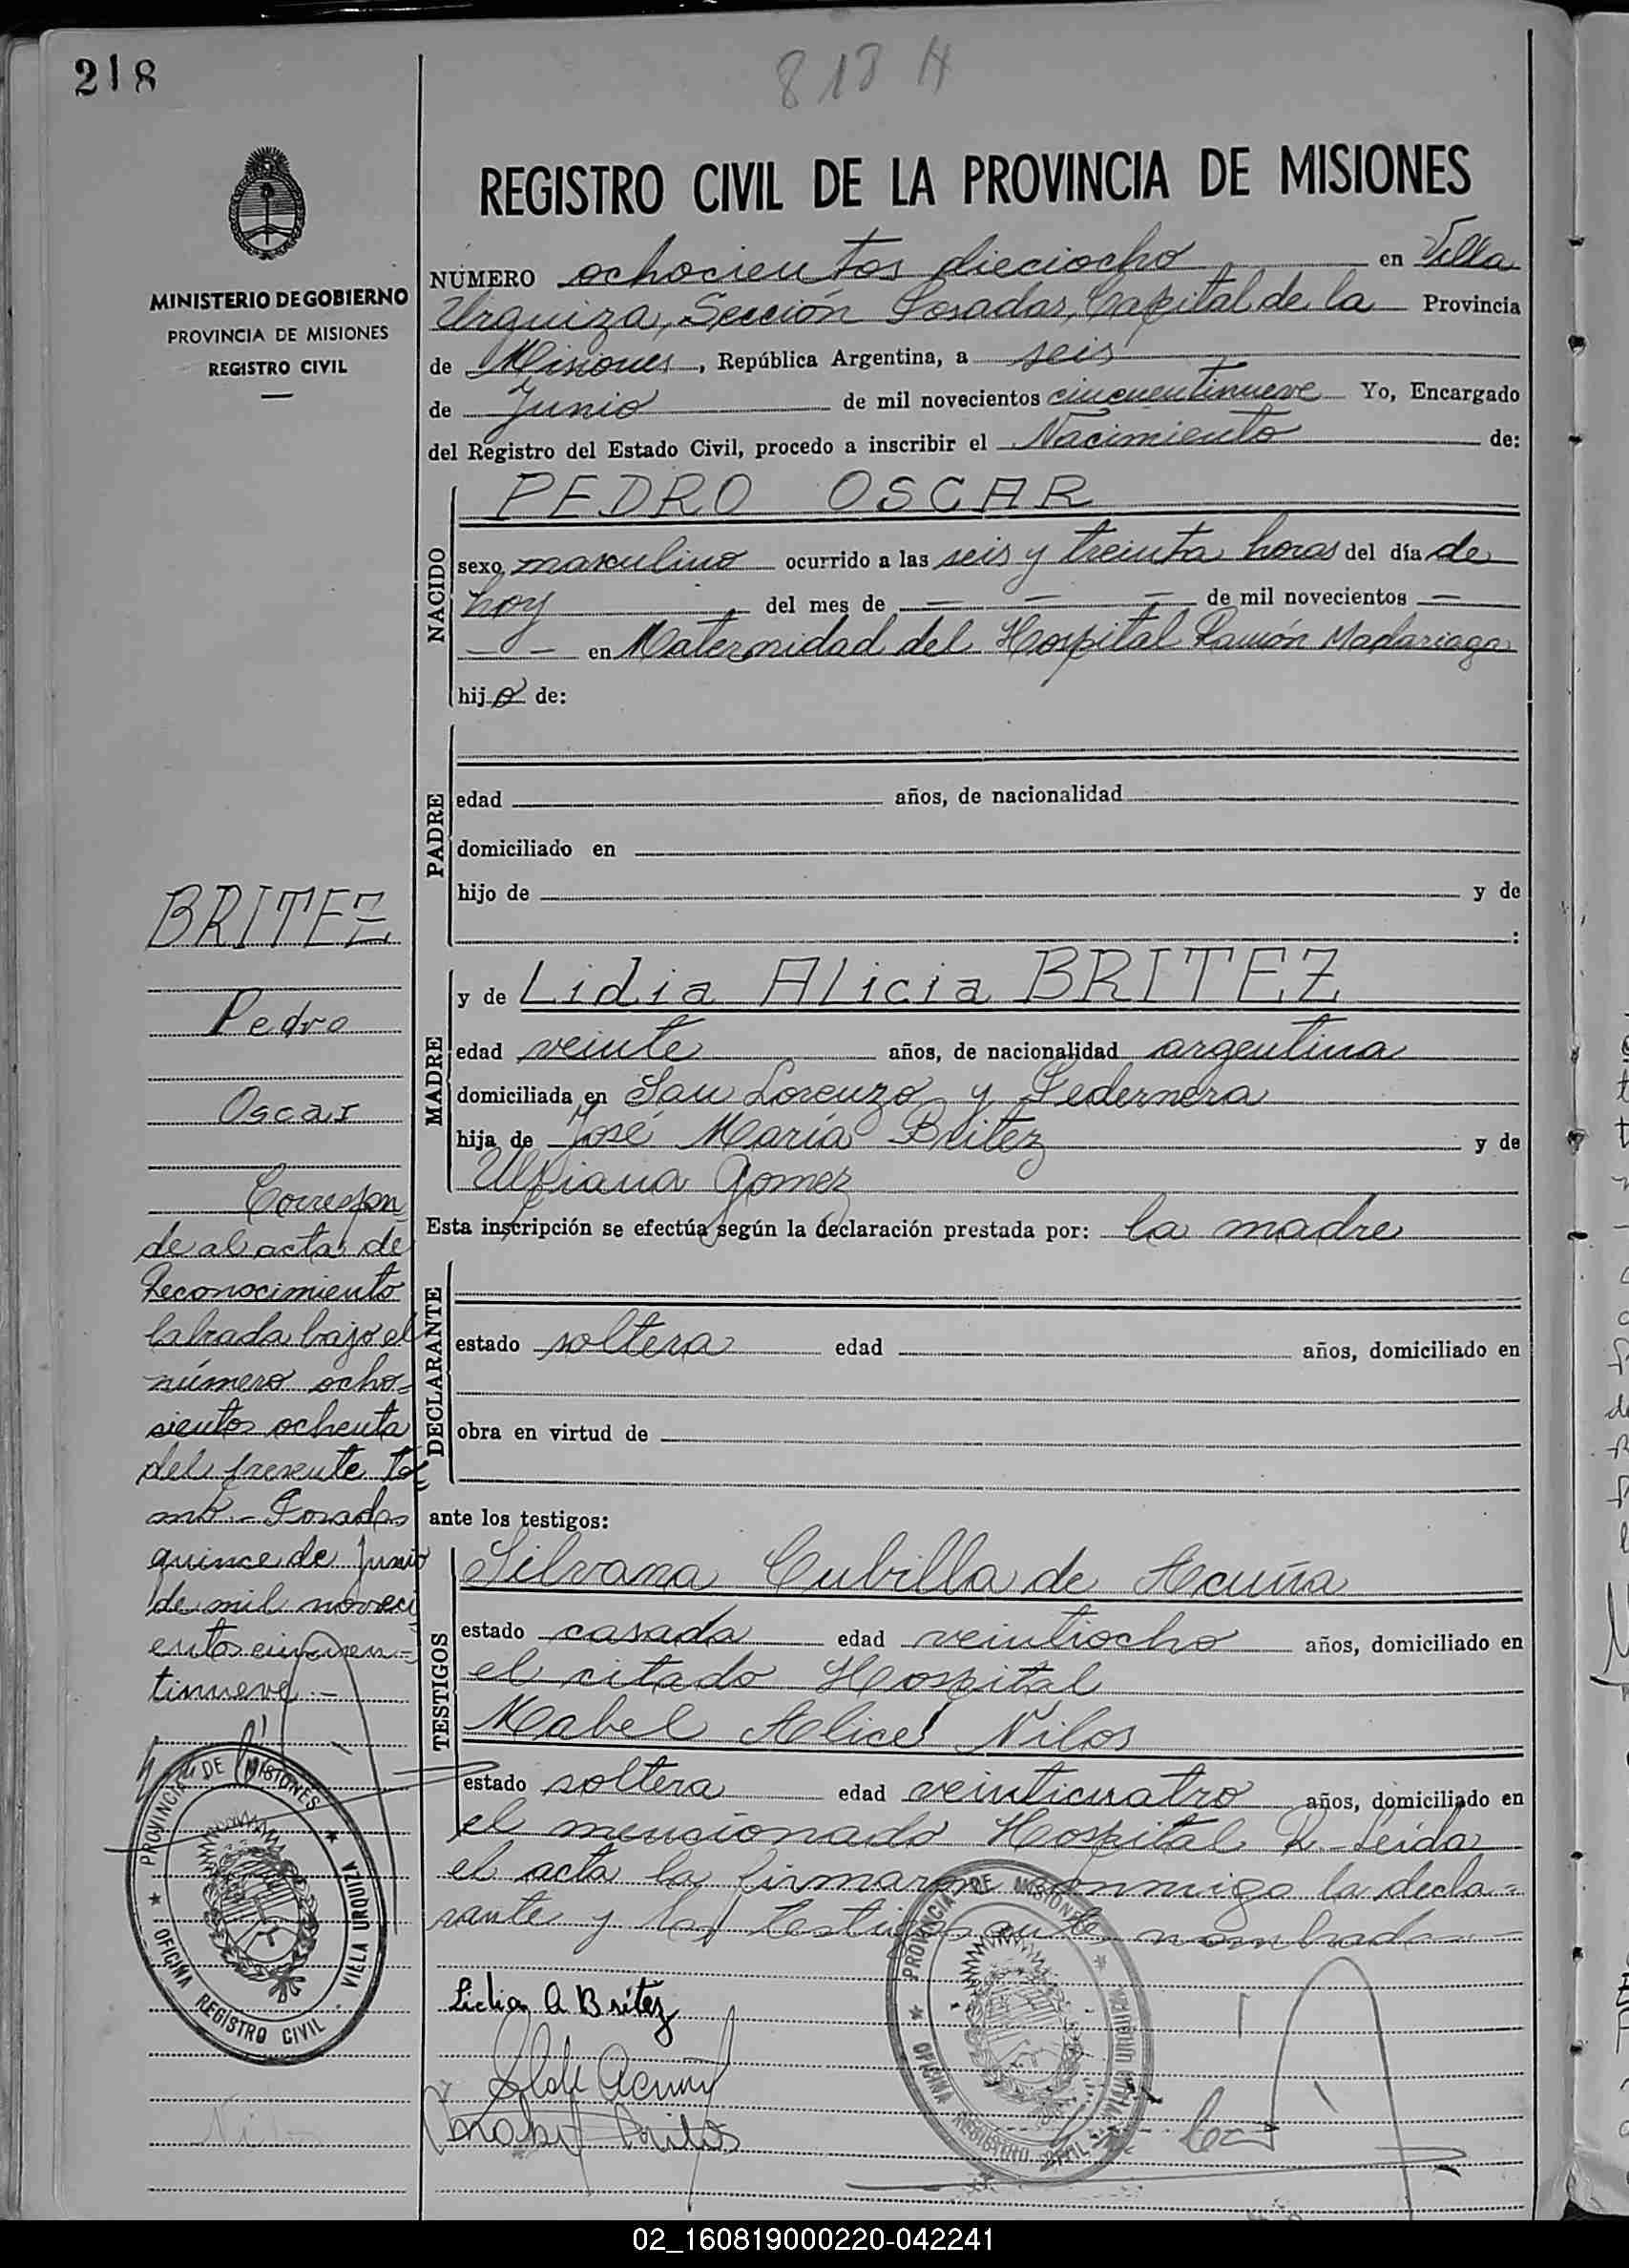 218
818 H
MINISTERIO DE GOBIERNO
PROVINCIA DE MISIONES
REGISTRO CIVIL
REGISTRO CIVIL DE LA PROVINCIA DE MISIONES
NÚMERO ochocientos dieciocho en Villa
Urquiza, Sección Posadas, Capital de la Provincia
de Misiones, República Argentina, a seis
de Junio de mil novecientos cincuentinueve Yo, Encargado
del Registro del Estado Civil, procedo a inscribir el Nacimiento de:
NACIDO
PEDRO OSCAR
sexo masculino ocurrido a las seis y treinta horas del día de
hoy del mes de — — — de mil novecientos —
— — en Maternidad del Hospital Ramón Madariaga
hijo de:
PADRE
edad años, de nacionalidad
domiciliado en
hijo de y de
:
MADRE
y de Lidia Alicia BRITEZ
edad veinte años, de nacionalidad argentina
domiciliada en San Lorenzo y Pedernera
hija de José María Britez y de
Ulpiana Gomez
Esta inscripción se efectúa según la declaración prestada por: la madre
DECLARANTE
estado soltera edad años, domiciliado en
obra en virtud de
ante los testigos:
TESTIGOS
Silvana Cubilla de Acuña
estado casada edad veintiocho años, domiciliado en
el citado Hospital
Mabel Alice Nilos
estado soltera edad veinticuatro años, domiciliado en
el mencionado Hospital R. Leída
el acta la firmaron conmigo la decla=
rante y los testigos ante nombrados
Lidia A Britez
Acuña
Mabel Nilos
BRITEZ
Pedro
Oscar
Correspon
de al acta de
Reconocimiento
labrada bajo el
número ocho=
sientos ochenta
del presente To=
mo.- Posadas
quince de Junio
de mil noveci
entos cincuen=
tinueve.-
PROVINCIA DE MISIONES
OFICINA REGISTRO CIVIL
VILLA URQUIZA
PROVINCIA DE MISIONES
OFICINA REGISTRO CIVIL
VILLA URQUIZA
02_160819000220-042241